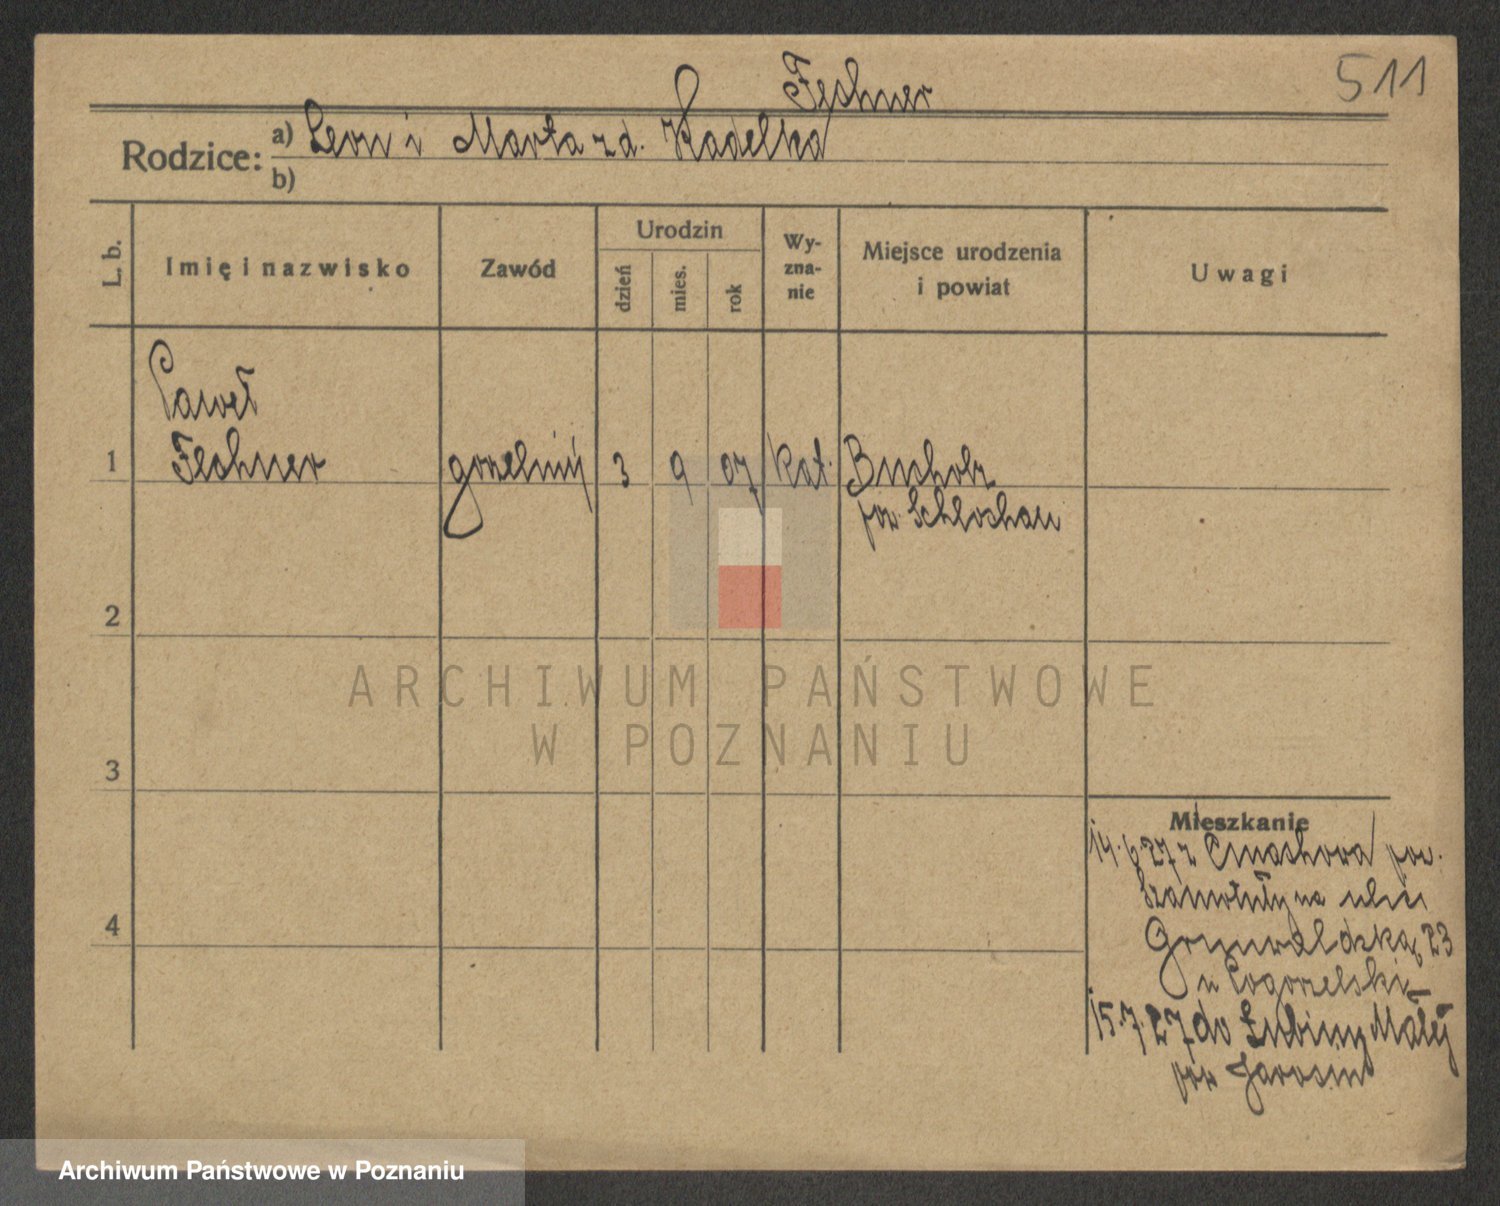 511
Fechner
Rodzice: a) Leon i Marta z d. Kadelka
b)
L. b.
Imię i nazwisko
Zawód
Urodzin
dzień
mies.
rok
Wy-
zna-
nie
Miejsce urodzenia
i powiat
Uwagi
Paweł
1 Fechner gorzelniy 3 9 07 kat. Bucholz
pow. Schlochau
2
3
4
Mieszkanie
14.6.27 z pow.
Szamotuły na ulicę
Grunwaldzką 23
u Pogorzelski
15.7.27 do Łubiny Małej
pow Jarosin
ARCHIWUM PAŃSTWOWE
W POZNANIU
Archiwum Państwowe w Poznaniu